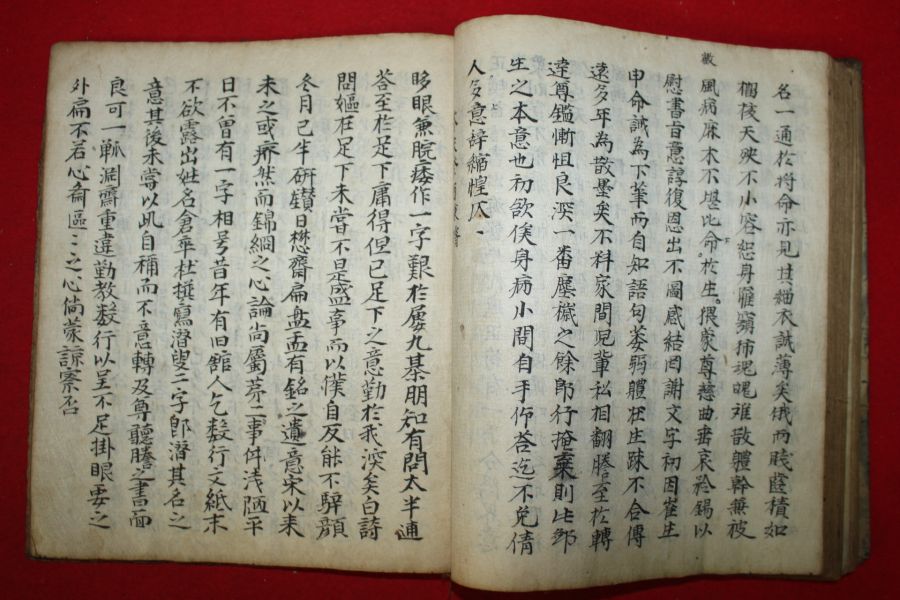 名一通於將命亦見其緇衣誠薄矣俄而賤蘧積如
櫚後天殃不小容恕身罹窮
風病麻木不堪比命於生猥蒙尊慈曲垂哀矜錫以
慰書旨意諄復恩出不圖感結罔謝文字初因崔生
申命誠為下筆而自知語句萎弱體裁生踈不合傳
遠多年為散墨矣不料家間兒輩私相翻謄至於轉
達尊鑑慚怛良深一番塵穢之餘卽行掩棄則此鄙
生之本意也初欲俟身病小間自手仰荅迄不免倩
人多意辞縮惶仄
眵眼兼腕痿作一字艱於屢九碁朋知有問太半逋
荅至於足下庸得但已足下之意勤於我深矣白詩
問嫗在足下未嘗不是盛事而以僕自反能不騂顔
冬月已半研鑽日懋齋扁盘盂有銘之遺意宋以来
未之或癈然而錦綱之心論尚屬第二事件浅陋平
日不曾有一字相号昔年有旧館人乞数行文紙末
不欲露出姓名倉卒杜撰寫潛叟二字卽潛其名之
意其後未嘗以此自稱而不意轉及尊聽謄之書面
良可一噱淵齋重違勤教数行以呈不足掛眼要之
外扁不若心齋區之心倘蒙諒察否